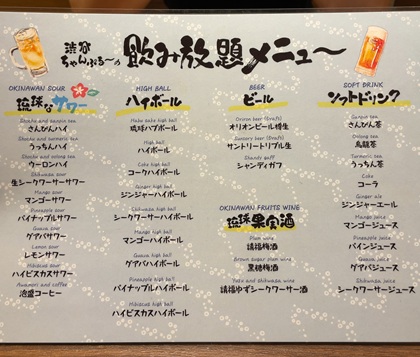 渋谷
ちゃんぷる〜の
飲み放題メニュ〜
OKINAWAN SOUR
琉球なサワー
Shochu and sanpin tea
さんぴんハイ
Shochu and turmeric tea
うっちんハイ
Shochu and oolong tea
ウーロンハイ
Shikuwasa sour
生シークワーサーサワー
Mango sour
マンゴーサワー
Pineapple sour
パイナップルサワー
Guava sour
グアバサワー
Lemon sour
レモンサワー
Hibiscus sour
ハイビスカスサワー
Awamori and coffee
泡盛コーヒー
HIGH BALL
ハイボール
Habu sake high ball
琉球ハブボール
High ball
ハイボール
Coke high ball
コークハイボール
Ginger high ball
ジンジャーハイボール
Shikuwasa high ball
シークワーサーハイボール
Mango high ball
マンゴーハイボール
Guava high ball
グアバハイボール
Pineapple high ball
パイナップルハイボール
Hibiscus high ball
ハイビスカスハイボール
BEER
ビール
Orion beer (draft)
オリオンビール樽生
Suntory beer (draft)
サントリートリプル生
Shandy gaff
シャンディガフ
OKINAWAN FRUITS WINE
琉球果実酒
Plum wine
請福梅酒
Brown sugar plum wine
黒糖梅酒
Yuzu and shikuwasa wine
請福ゆずシークワーサー酒
SOFT DRINK
ソフトドリンク
Sanpin tea
さんぴん茶
Oolong tea
烏龍茶
Turmeric tea
うっちん茶
Coke
コーラ
Ginger ale
ジンジャーエール
Mango juice
マンゴージュース
Pineapple juice
パインジュース
Guava juice
グアバジュース
Shikuwasa juice
シークワーサージュース